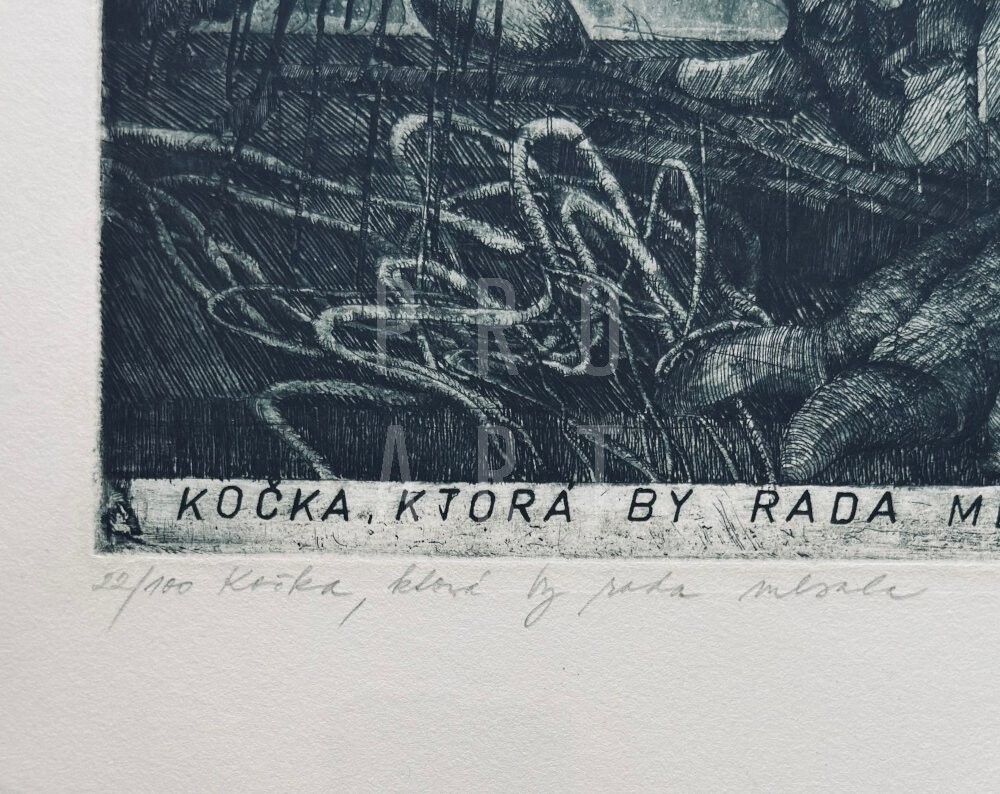 PRO
ART
KOČKA, KTORÁ BY RADA M
22/100 Kočka, která by rada mlsala